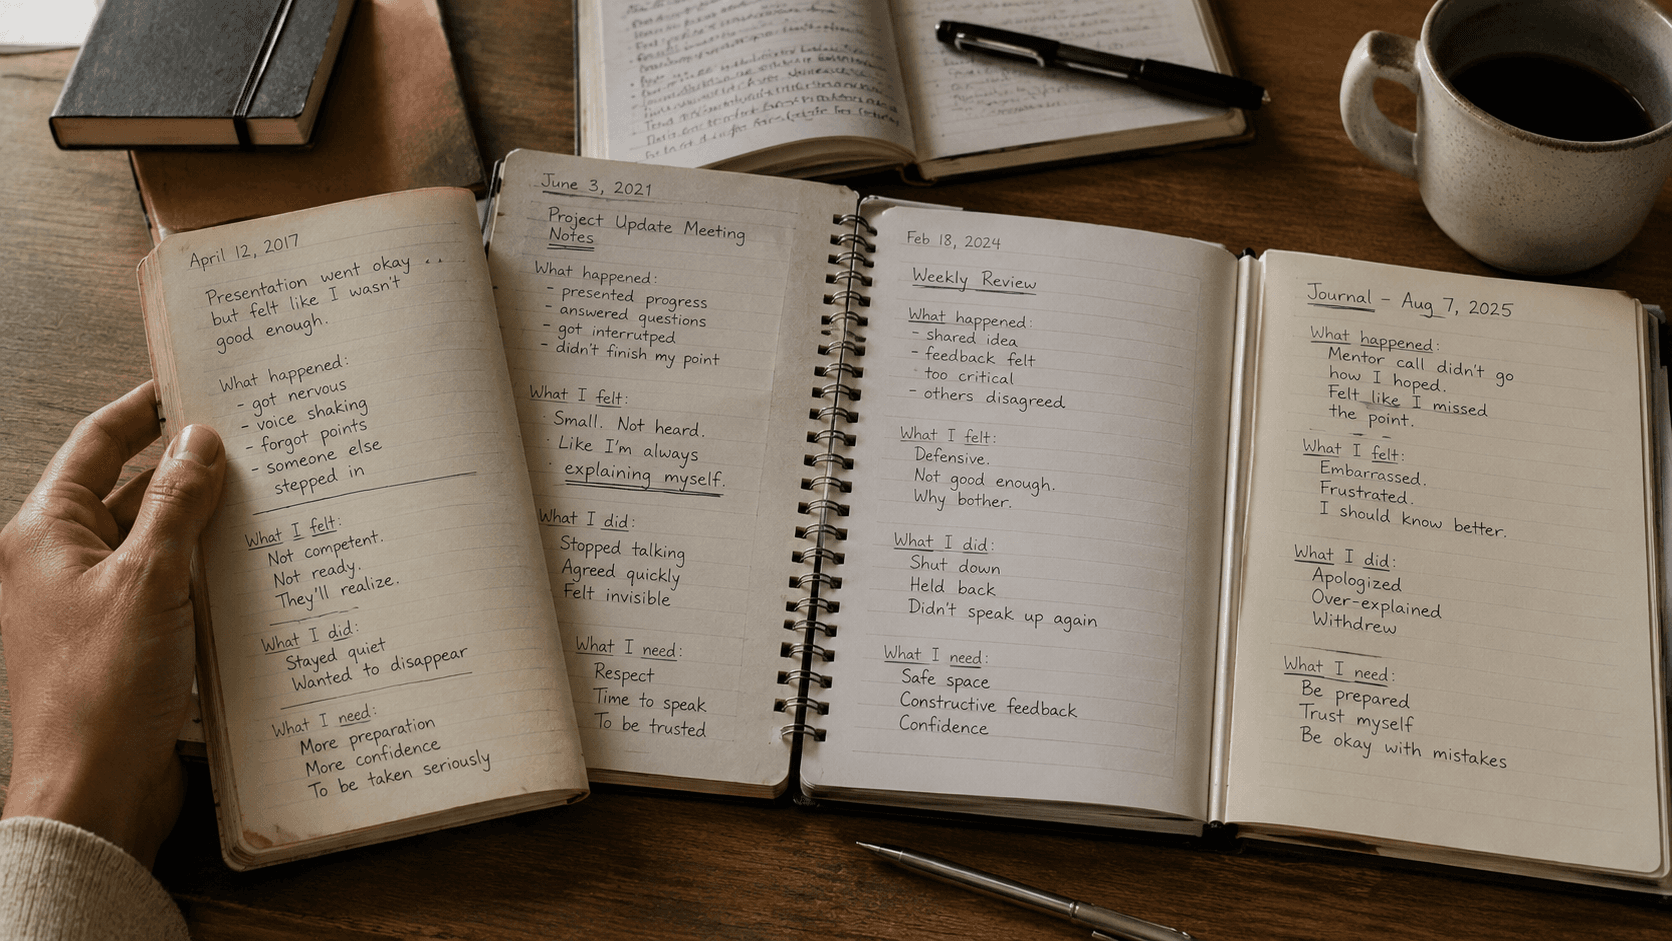 April 12, 2017
Presentation went okay . .
but felt like I wasn't
good enough.
What happened:
- got nervous
- voice shaking
- forgot points
- someone else
stepped in
What I felt:
Not competent.
Not ready.
They'll realize.
What I did:
Stayed quiet
Wanted to disappear
What I need:
More preparation
More confidence
To be taken seriously
June 3, 2021
Project Update Meeting
Notes
What happened:
- presented progress
- answered questions
- got interrutped
- didn't finish my point
What I felt:
· Small. Not heard.
· Like I'm always
· explaining myself.
What I did:
Stopped talking
Agreed quickly
Felt invisible
What I need:
Respect
Time to speak
To be trusted
Feb 18, 2024
Weekly Review
What happened:
- shared idea
- feedback felt
· too critical
- others disagreed
What I felt:
Defensive.
Not good enough.
Why bother.
What I did:
Shut down
Held back
Didn't speak up again
What I need:
Safe space
Constructive feedback
Confidence
Journal – Aug 7, 2025
What happened:
Mentor call didn't go
how I hoped.
Felt like I missed
the point.
What I felt:
Embarrassed.
Frustrated.
I should know better.
What I did:
Apologized
Over-explained
Withdrew
What I need:
Be prepared
Trust myself
Be okay with mistakes